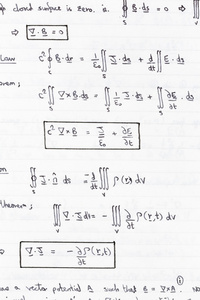 closed surface is zero. i.e. ∯_S B.ds = 0 ⇒
⇒ ∇.B = 0
Law c² ∮ B.dr = 1/ε₀ ∬_S J.ds + d/dt ∬_S E.ds
c² ∬_S ∇×B.ds = ∬_S 1/ε₀ J.ds + ∬_S ∂E/∂t .ds
c² ∇×B = J/ε₀ + ∂E/∂t
∯_S J.n̂ ds = -d/dt ∭_V ρ(r,t) dV
theorem; ∭_V ∇.J dV = -∭_V ∂/∂t ρ(r,t) dV
∇.J = -∂ρ(r,t)/∂t
①
a vector potential A such that B = ∇×A.